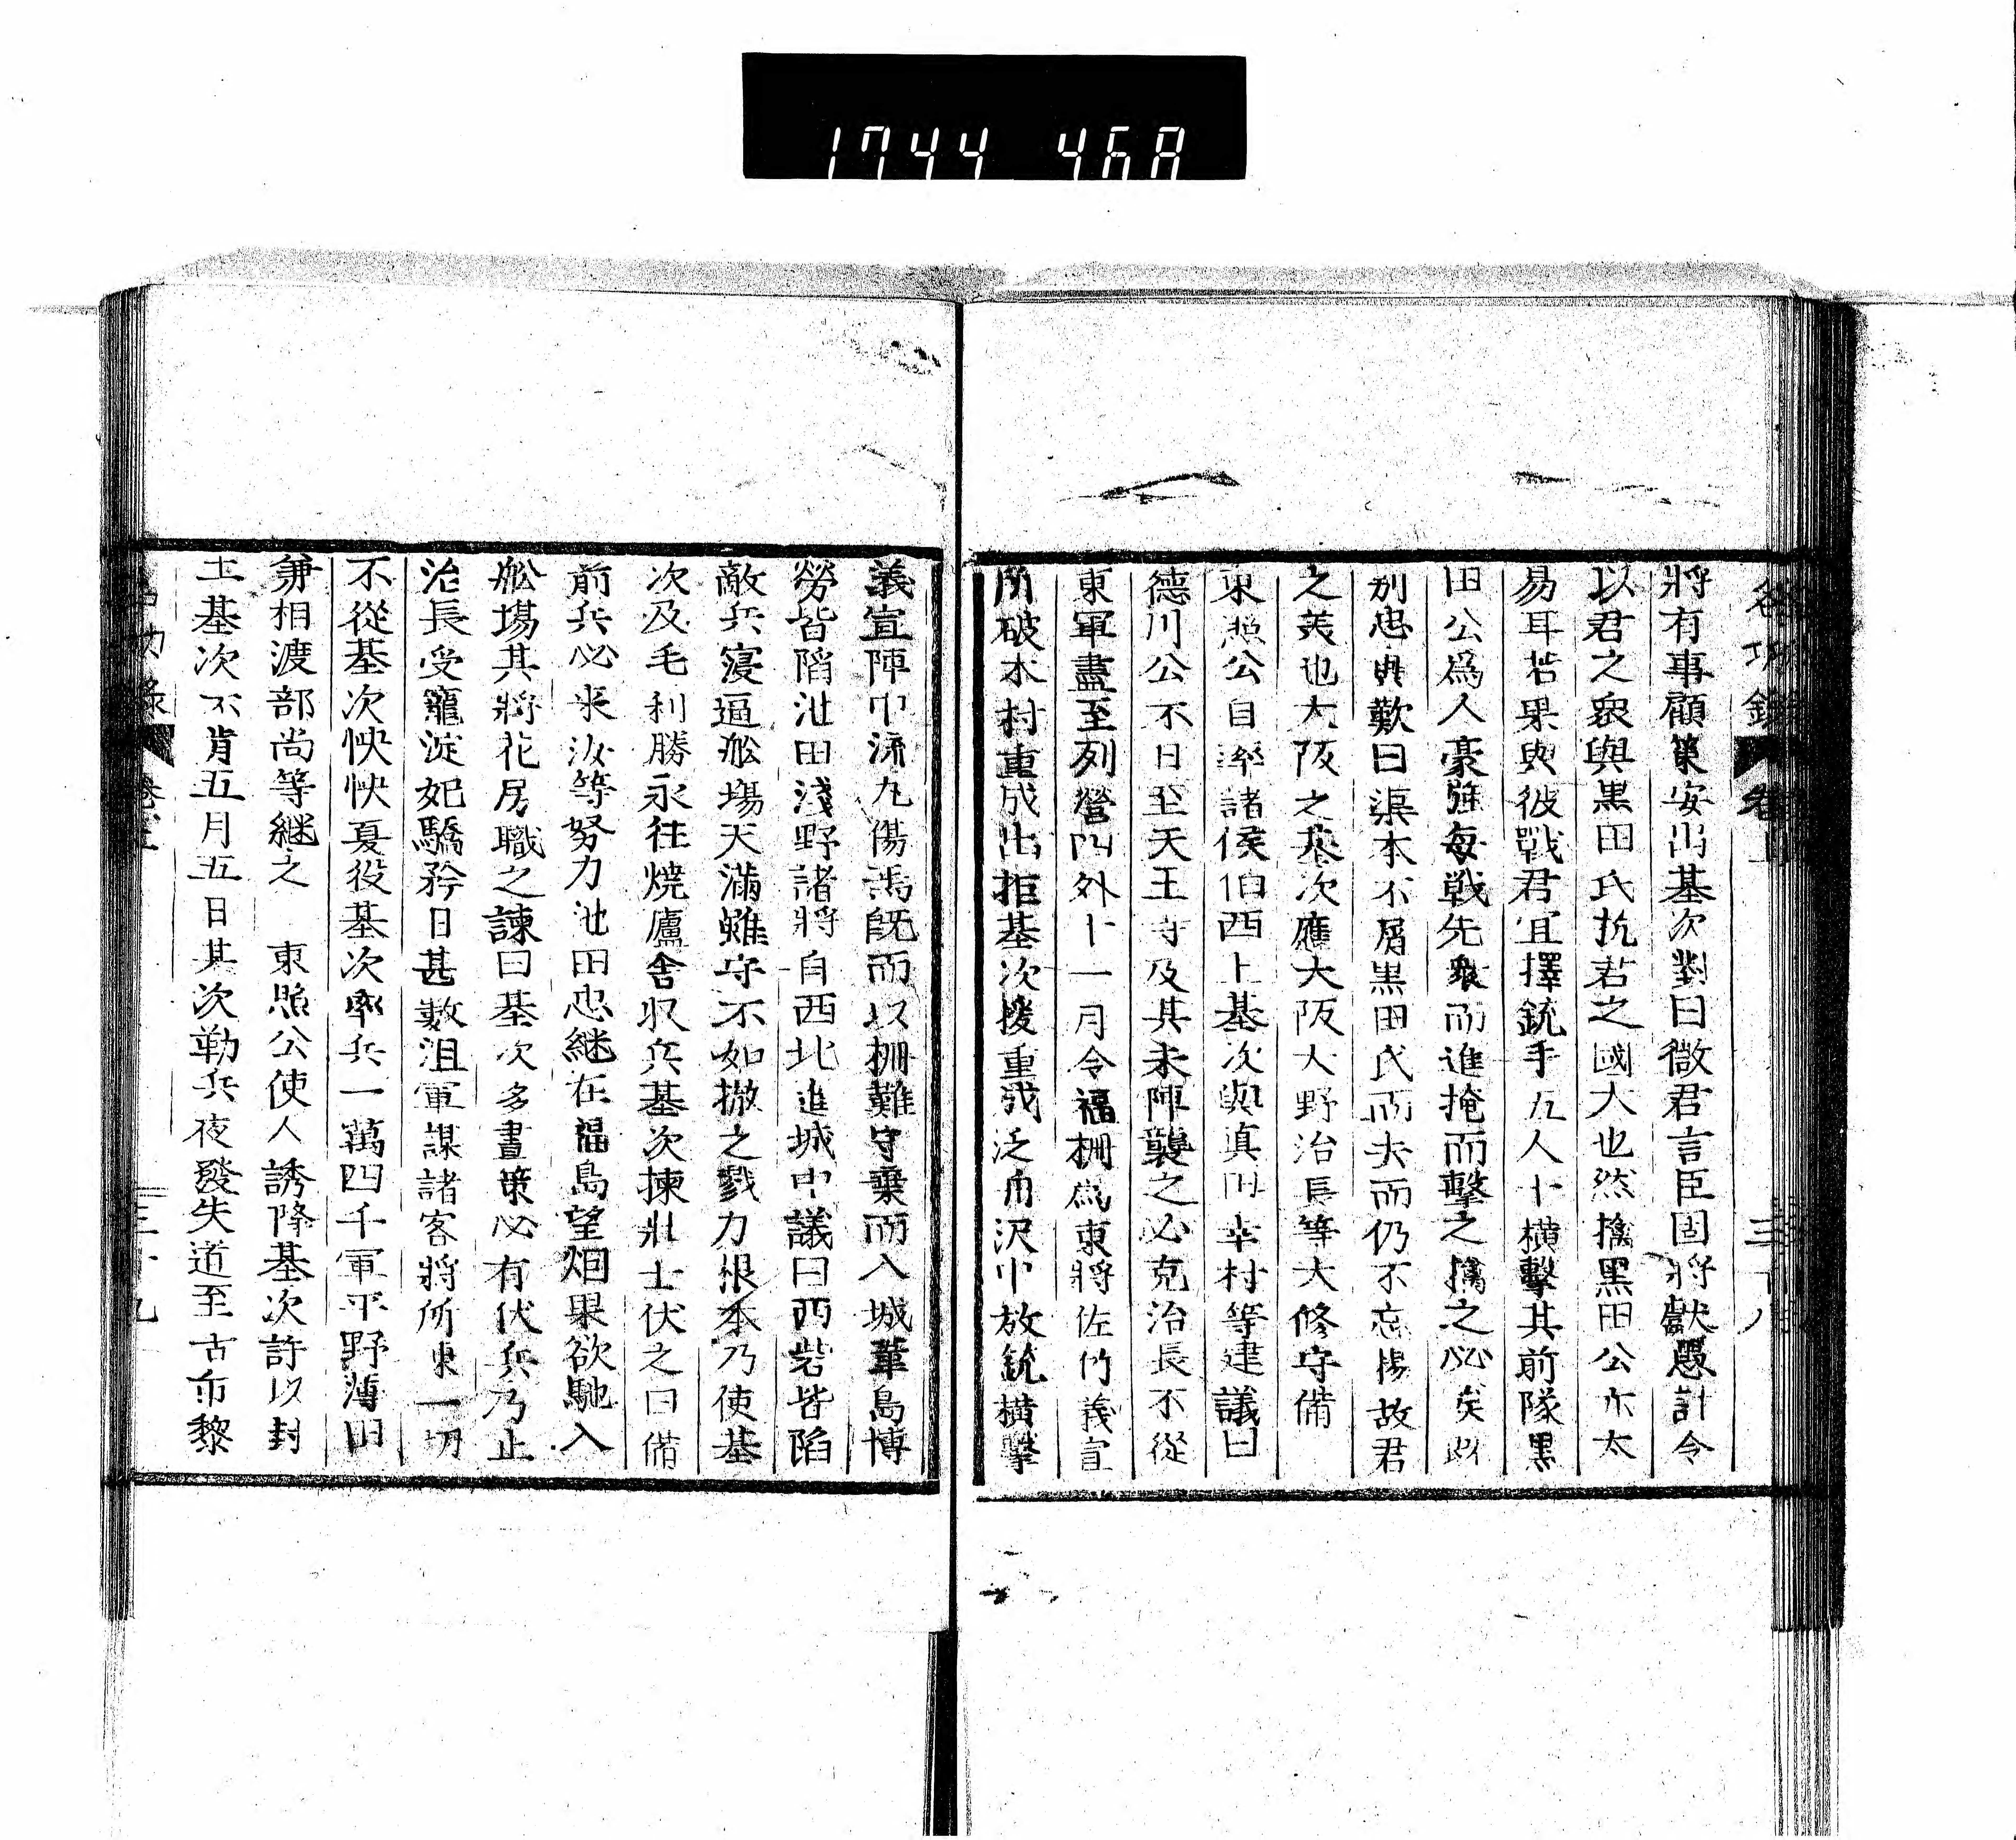 1744 468
將有事顧策安出基次對曰微君言臣固將獻愚計今
以君之衆與黒田氏抗君之國大也然擒黒田公亦太
易耳若果與彼戰君宜擇銃手五人十横擊其前隊黒
田公爲人豪強每戰先衆而進掩而擊之擒之必矣既
別忠興歎曰渠本不屑黒田氏而去而仍不忘揚故君
之美也大阪之基次應大阪大野治長等大修守備
東照公自率諸侯伯西上基次與真田幸村等建議曰
德川公不日至天王寺及其未陣襲之必克治長不從
東軍盡至列營四外十一月令福柵爲東將佐竹義宣
所破木村重成出拒基次援重成泛舟沢中放銃橫擊
義宣陣中流丸傷焉既而以柵難守棄而入城葦島博
勞皆陷池田淺野諸將自西北進城中議曰西砦皆陷
敵兵寖逼舩塲天滿雖守不如撤之戮力根本乃使基
次及毛利勝永往焼廬舍収兵基次揀壯士伏之曰備
前兵必來汝等努力池田忠継在福島望烟果欲馳入
舩塲其將花房職之諫曰基次多畫策必有伏兵乃止
治長受寵淀妃驕矜日甚數沮軍謀諸客將所陳一切
不從基次怏怏夏役基次率兵一萬四千軍平野薄田
兼相渡部尚等継之 東照公使人誘降基次許以封
土基次不肯五月五日基次勒兵夜發失道至古市黎